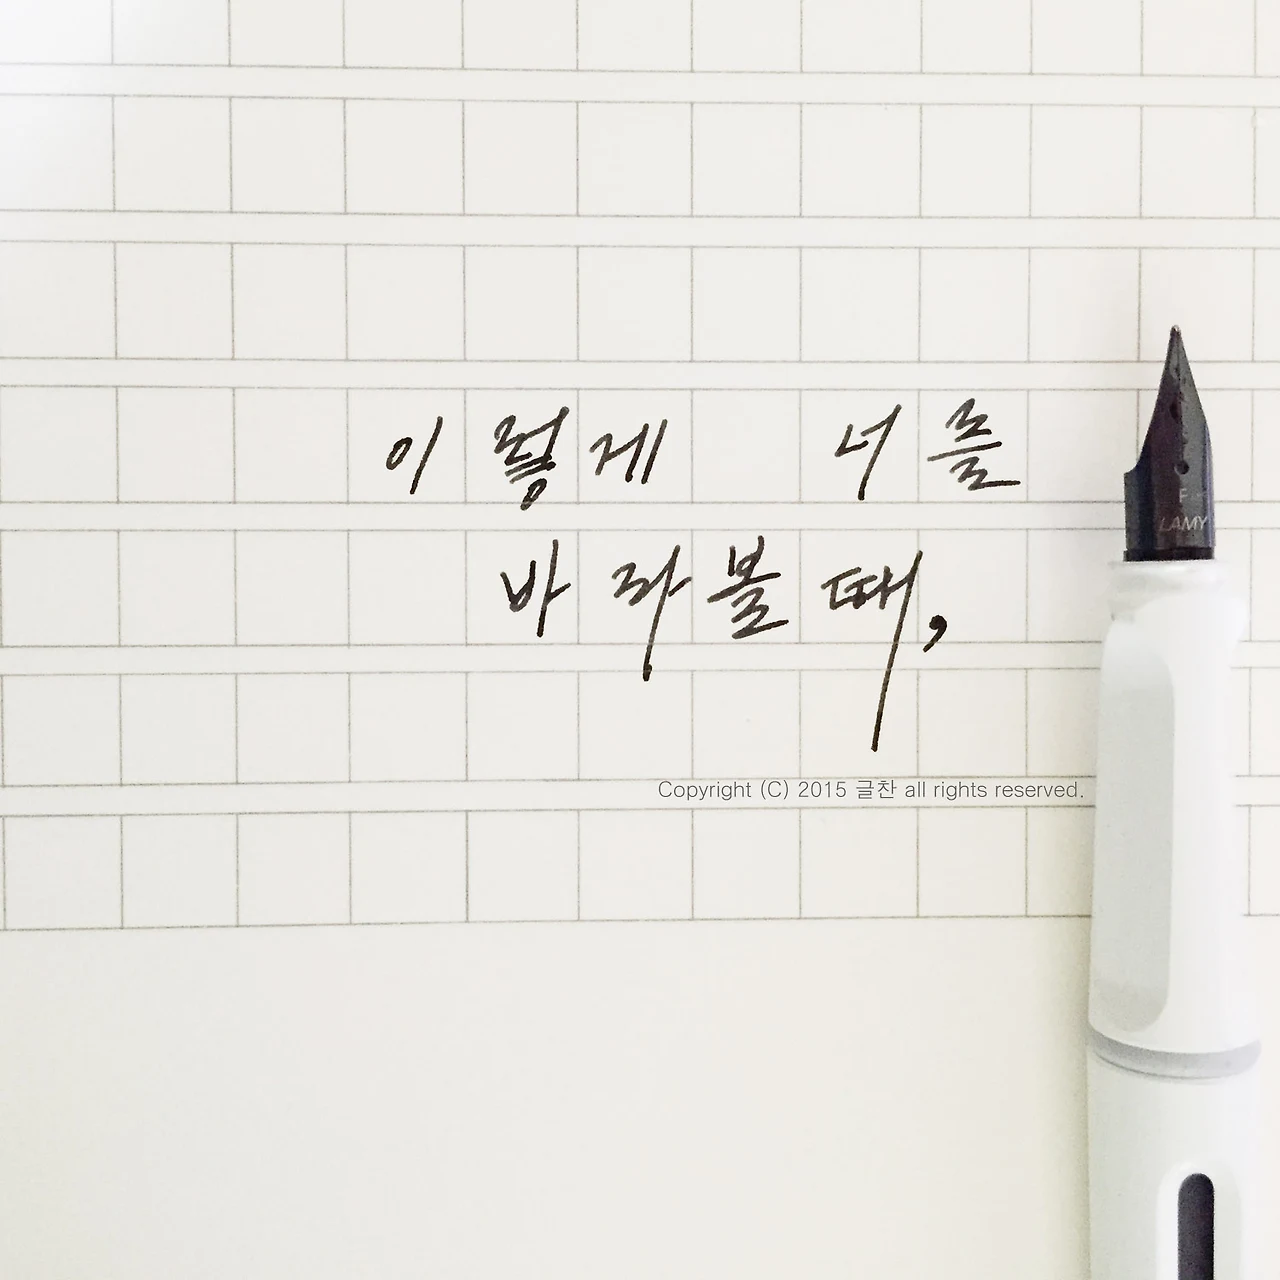 이렇게 너를
바라볼 때,
F
LAMY
Copyright (C) 2015 글찬 all rights reserved.